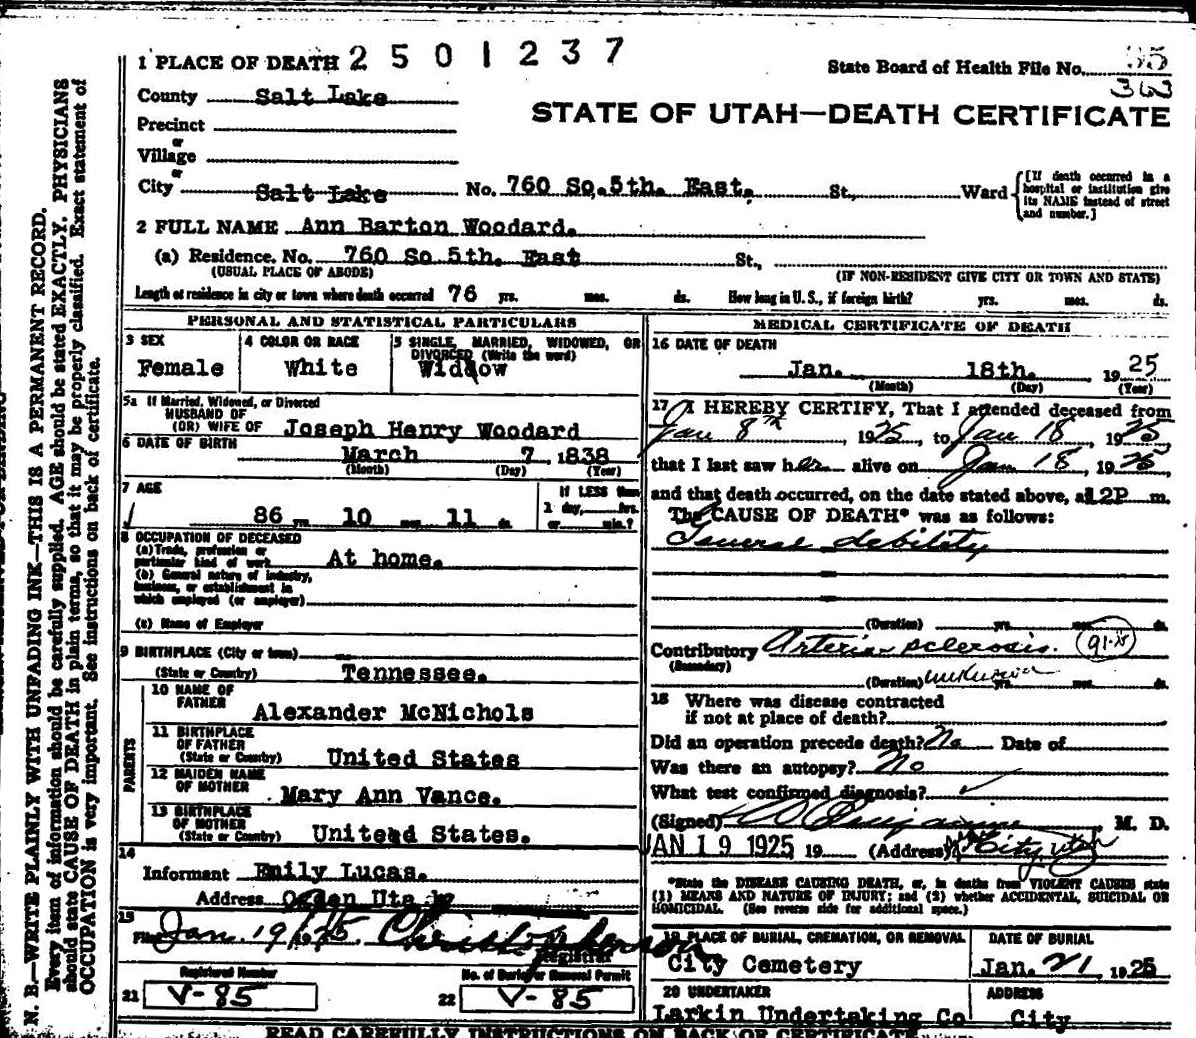 1 PLACE OF DEATH 2 5 0 1 2 3 7
State Board of Health File No. 85
363
County Salt Lake
STATE OF UTAH—DEATH CERTIFICATE
Precinct
or
Village
or
City Salt Lake No. 760 So. 5th. East. St., Ward
[If death occurred in a hospital or institution give its NAME instead of street and number.]
2 FULL NAME Ann Barton Woodard.
(a) Residence. No. 760 So 5th. East St.,
(USUAL PLACE OF ABODE) (IF NON-RESIDENT GIVE CITY OR TOWN AND STATE)
Length of residence in city or town where death occurred 76 yrs. mos. ds. How long in U. S., if foreign birth? yrs. mos. ds.
PERSONAL AND STATISTICAL PARTICULARS
3 SEX
Female
4 COLOR OR RACE
White
5 SINGLE, MARRIED, WIDOWED, OR
DIVORCED (Write the word)
Widow
5a If Married, Widowed, or Divorced
HUSBAND OF
(OR) WIFE OF Joseph Henry Woodard
6 DATE OF BIRTH March 7, 1838
(Month) (Day) (Year)
7 AGE
86 yrs 10 mos 11 ds.
If LESS than
1 day, hrs.
or min.?
8 OCCUPATION OF DECEASED
(a) Trade, profession or
particular kind of work At home.
(b) General nature of industry,
business, or establishment in
which employed (or employer)
(c) Name of Employer
9 BIRTHPLACE (City or town)
(State or Country) Tennessee.
PARENTS
10 NAME OF
FATHER Alexander McNichols
11 BIRTHPLACE
OF FATHER
(State or Country) United States
12 MAIDEN NAME
OF MOTHER Mary Ann Vance.
13 BIRTHPLACE
OF MOTHER
(State or Country) United States.
14
Informant Emily Lucas.
Address Ogden Utah
15
Filed Jan. 19 1925 Christopherson
Registrar
Registered Number
21 V-85
No. of Burial or Removal Permit
22 V-85
MEDICAL CERTIFICATE OF DEATH
16 DATE OF DEATH
Jan. 18th. 1925
(Month) (Day) (Year)
17 I HEREBY CERTIFY, That I attended deceased from
Jan 8th, 1925, to Jan 18, 1925,
that I last saw her alive on Jan 18, 1925
and that death occurred, on the date stated above, at 12P m.
The CAUSE OF DEATH* was as follows:
General debility
(Duration) yrs. mos. ds.
Contributory Arterial sclerosis. 91-b
(Secondary)
(Duration) unknown yrs. mos. ds.
18 Where was disease contracted
if not at place of death?
Did an operation precede death? No Date of
Was there an autopsy? No
What test confirmed diagnosis? ✓
(Signed) M. D.
JAN 19 1925, 19 (Address) City, Utah
*State the DISEASE CAUSING DEATH, or, in deaths from VIOLENT CAUSES state
(1) MEANS AND NATURE OF INJURY; and (2) whether ACCIDENTAL, SUICIDAL OR
HOMICIDAL. (See reverse side for additional space.)
19 PLACE OF BURIAL, CREMATION, OR REMOVAL
City Cemetery
DATE OF BURIAL
Jan. 21, 1925
20 UNDERTAKER
Larkin Undertaking Co
ADDRESS
City
READ CAREFULLY INSTRUCTIONS ON BACK OF CERTIFICATE
N. B.—WRITE PLAINLY WITH UNFADING INK—THIS IS A PERMANENT RECORD.
Every item of information should be carefully supplied. AGE should be stated EXACTLY. PHYSICIANS
should state CAUSE OF DEATH in plain terms, so that it may be properly classified. Exact statement of
OCCUPATION is very important. See instructions on back of certificate.